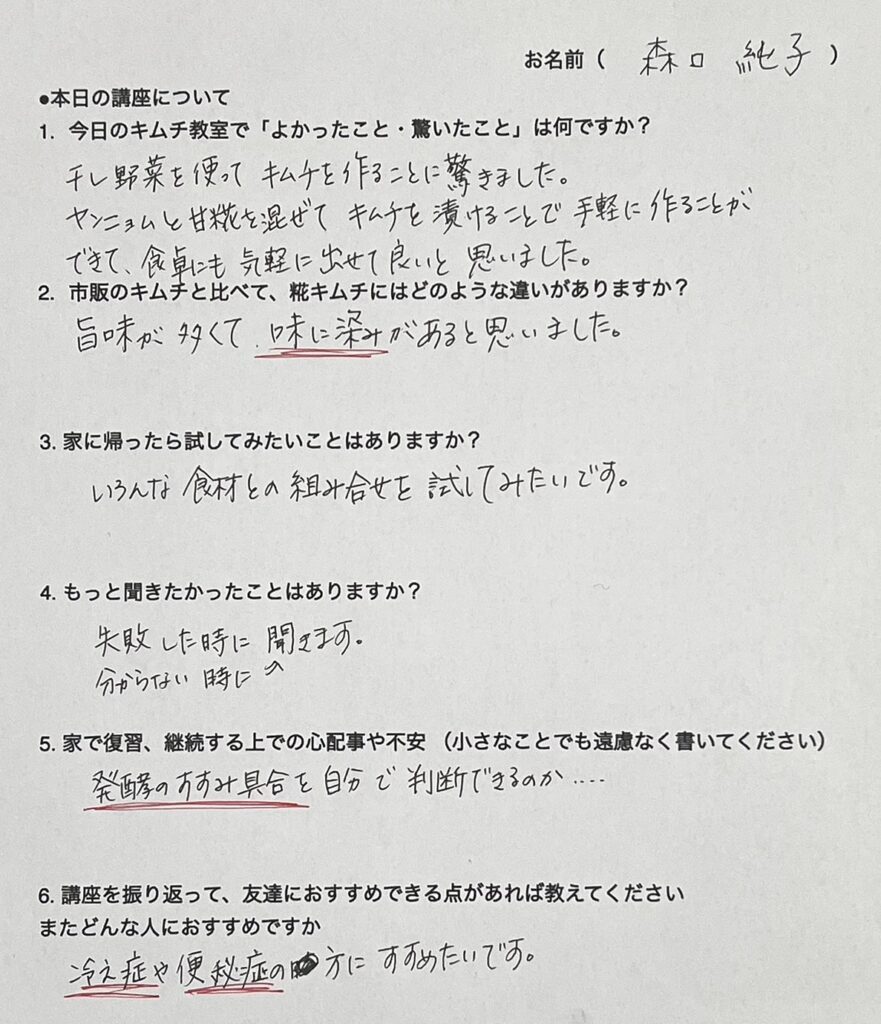 お名前（ 森口 純子 ）
●本日の講座について
1. 今日のキムチ教室で「よかったこと・驚いたこと」は何ですか？
干し野菜を使って キムチを作ることに驚きました。
ヤンニョムと甘糀を混ぜて キムチを漬けることで 手軽に作ることが
できて、食卓にも気軽に出せて良いと思いました。
2. 市販のキムチと比べて、糀キムチにはどのような違いがありますか？
旨味が多くて、味に染みがあると思いました。
3. 家に帰ったら試してみたいことはありますか？
いろんな食材との組み合せを試してみたいです。
4. もっと聞きたかったことはありますか？
失敗した時に聞きます。
分からない時に 〃
5. 家で復習、継続する上での心配事や不安 （小さなことでも遠慮なく書いてください）
発酵のすすみ具合を自分で判断できるのか‥‥
6. 講座を振り返って、友達におすすめできる点があれば教えてください
またどんな人におすすめですか
冷え症や便秘症の方にすすめたいです。